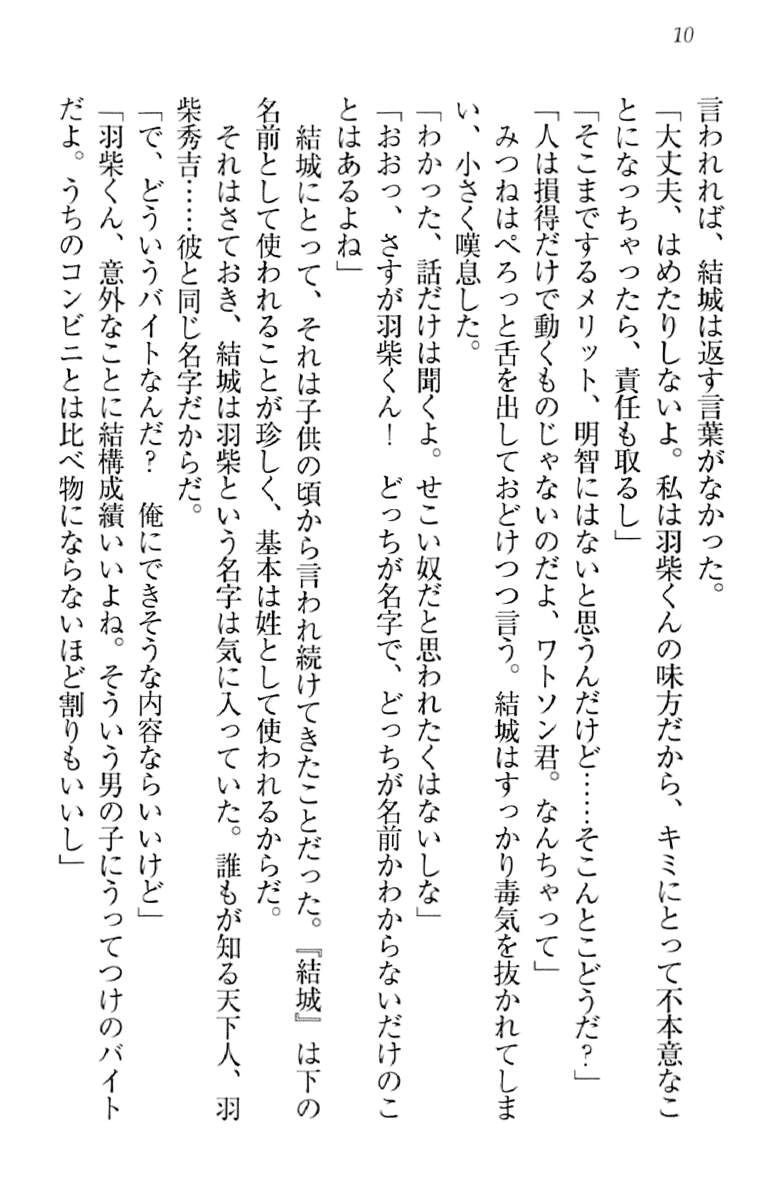 10
言われれば、結城は返す言葉がなかった。
「大丈夫、はめたりしないよ。私は羽柴くんの味方だから、キミにとって不本意なこ
とになっちゃったら、責任も取るし」
「そこまでするメリット、明智にはないと思うんだけど……そこんとこどうだ？」
「人は損得だけで動くものじゃないのだよ、ワトソン君。なんちゃって」
　みつねはぺろっと舌を出しておどけつつ言う。結城はすっかり毒気を抜かれてしま
い、小さく嘆息した。
「わかった、話だけは聞くよ。せこい奴だと思われたくはないしな」
「おおっ、さすが羽柴くん！　どっちが名字で、どっちが名前かわからないだけのこ
とはあるよね」
　結城にとって、それは子供の頃から言われ続けてきたことだった。『結城』は下の
名前として使われることが珍しく、基本は姓として使われるからだ。
　それはさておき、結城は羽柴という名字は気に入っていた。誰もが知る天下人、羽
柴秀吉……彼と同じ名字だからだ。
「で、どういうバイトなんだ？　俺にできそうな内容ならいいけど」
「羽柴くん、意外なことに結構成績いいよね。そういう男の子にうってつけのバイト
だよ。うちのコンビニとは比べ物にならないほど割りもいいし」